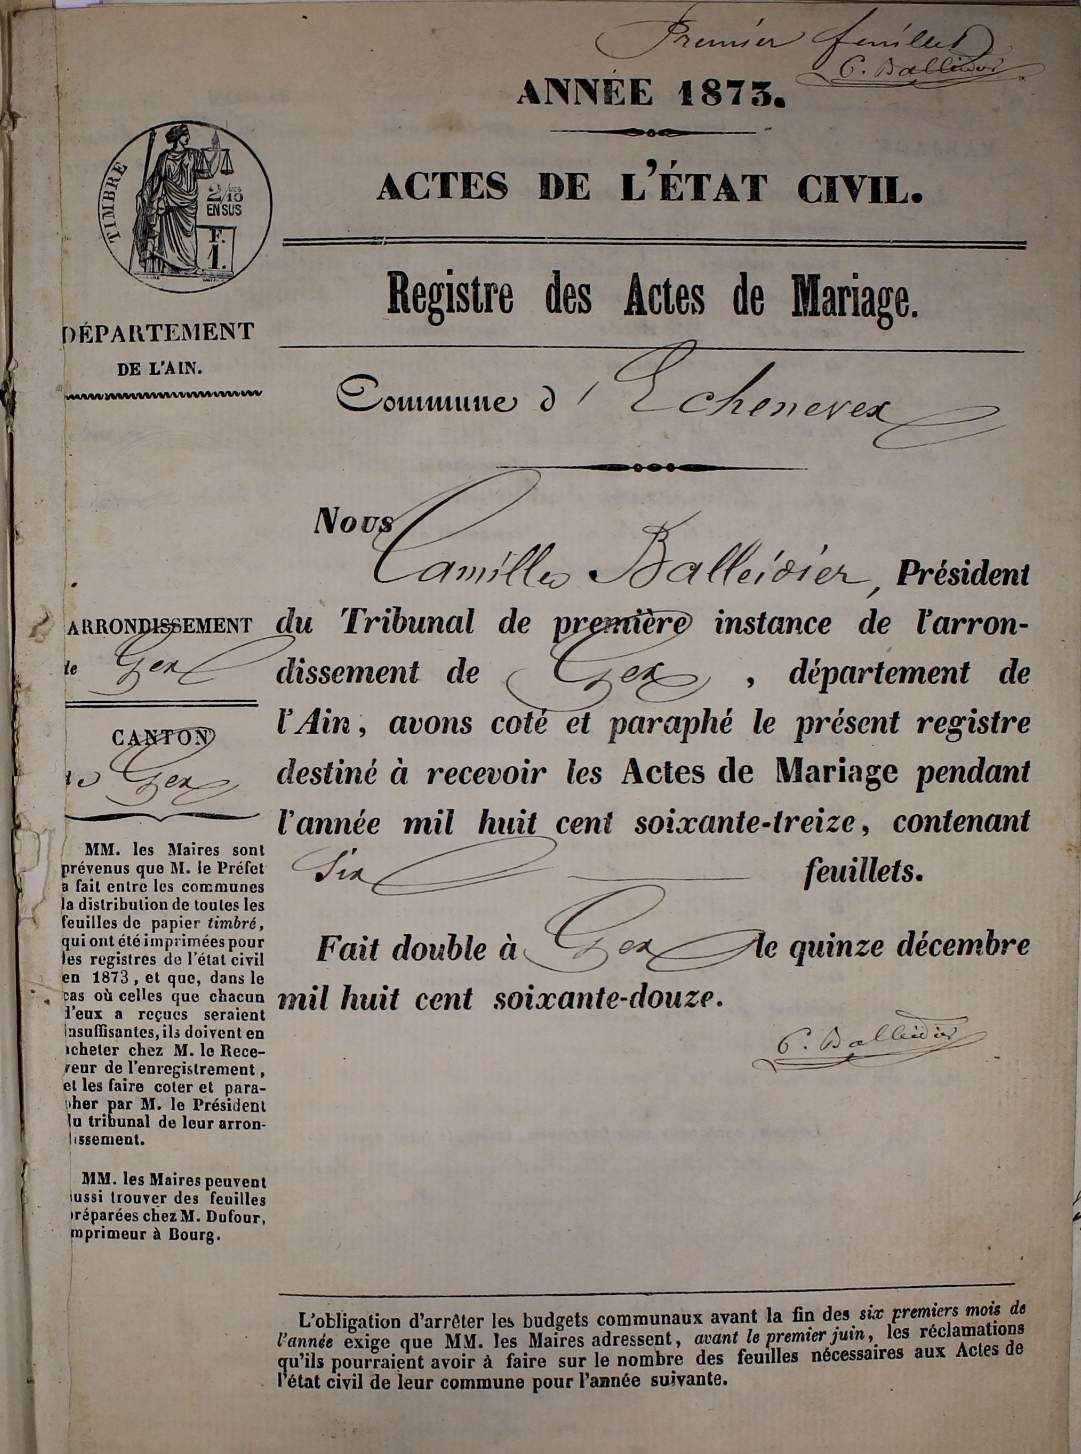 Premier feuillet
C. Balleidier
ANNÉE 1873.
TIMBRE
2/10
EN SUS
F.
1.
ACTES DE L'ÉTAT CIVIL.
Registre des Actes de Mariage.
DÉPARTEMENT
DE L'AIN.
Commune d'Echenevex
Nous
Camille Balleidier, Président
du Tribunal de première instance de l'arron-
dissement de Gex, département de
l'Ain, avons coté et paraphé le présent registre
destiné à recevoir les Actes de Mariage pendant
l'année mil huit cent soixante-treize, contenant
Six feuillets.
Fait double à Gex le quinze décembre
mil huit cent soixante-douze.
C. Balleidier
ARRONDISSEMENT
de Gex
CANTON
de Gex
MM. les Maires sont
prévenus que M. le Préfet
a fait entre les communes
la distribution de toutes les
feuilles de papier timbré,
qui ont été imprimées pour
les registres de l'état civil
en 1873, et que, dans le
cas où celles que chacun
d'eux a reçues seraient
insuffisantes, ils doivent en
acheter chez M. le Rece-
veur de l'enregistrement,
et les faire coter et para-
pher par M. le Président
du tribunal de leur arron-
dissement.
MM. les Maires peuvent
aussi trouver des feuilles
préparées chez M. Dufour,
imprimeur à Bourg.
L'obligation d'arrêter les budgets communaux avant la fin des six premiers mois de
l'année exige que MM. les Maires adressent, avant le premier juin, les réclamations
qu'ils pourraient avoir à faire sur le nombre des feuilles nécessaires aux Actes de
l'état civil de leur commune pour l'année suivante.